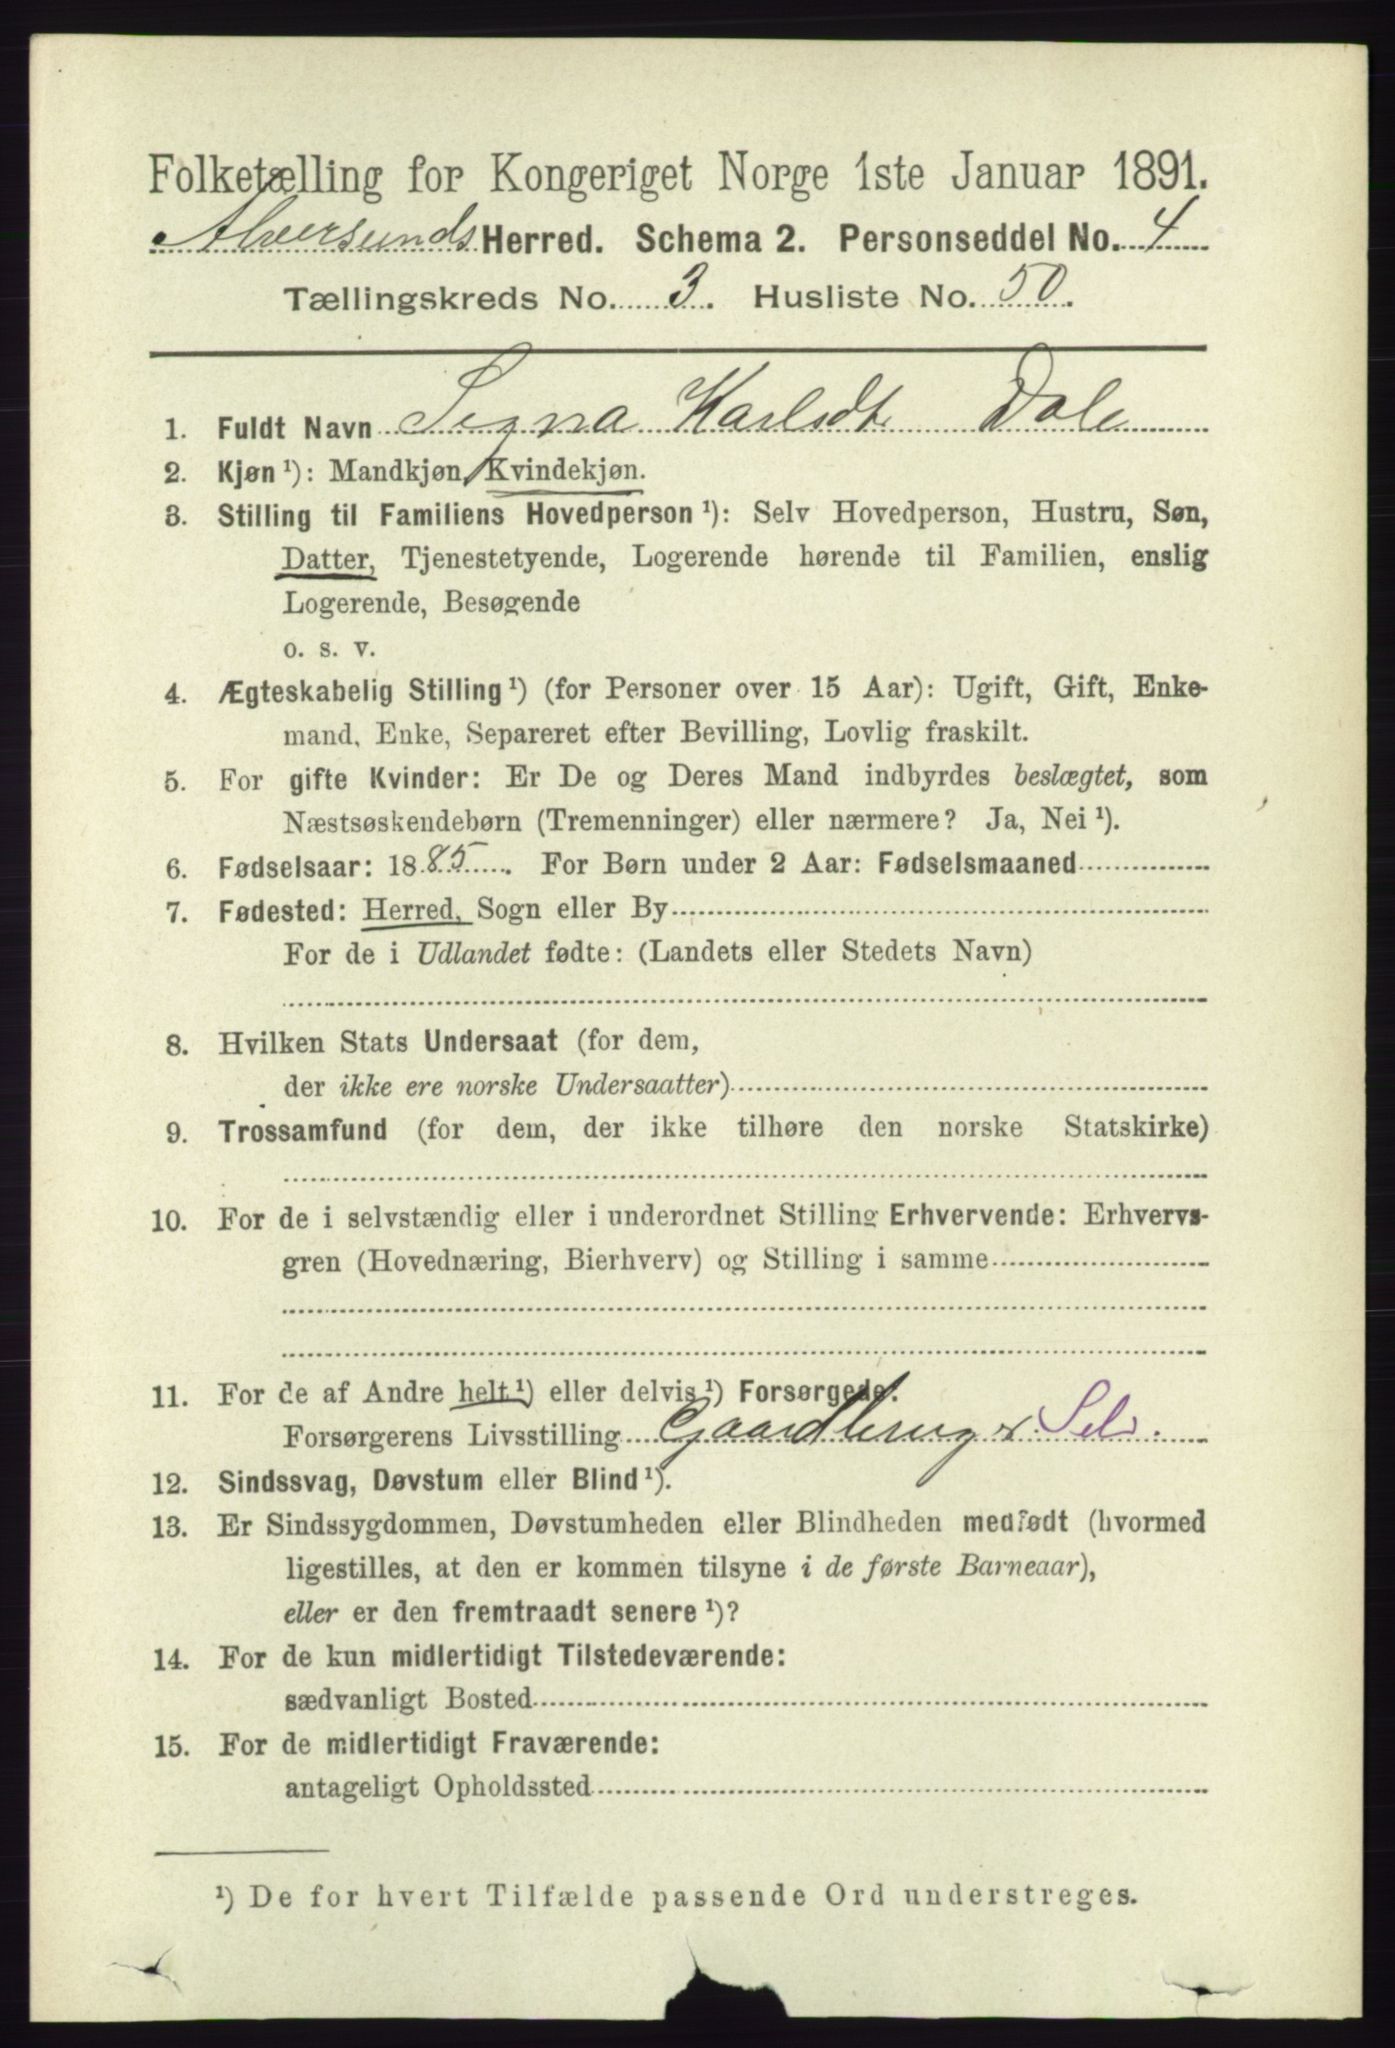 Folketælling for Kongeriget Norge 1ste Januar 1891.
Alversunds Herred. Schema 2. Personseddel No. 4
Tællingskreds No. 3. Husliste No. 50.
1. Fuldt Navn Signa Karlsdt Dale
2. Kjøn ¹): Mandkjøn, Kvindekjøn.
3. Stilling til Familiens Hovedperson ¹): Selv Hovedperson, Hustru, Søn,
Datter, Tjenestetyende, Logerende hørende til Familien, enslig
Logerende, Besøgende
o. s. v.
4. Ægteskabelig Stilling ¹) (for Personer over 15 Aar): Ugift, Gift, Enke-
mand, Enke, Separeret efter Bevilling, Lovlig fraskilt.
5. For gifte Kvinder: Er De og Deres Mand indbyrdes beslægtet, som
Næstsøskendebørn (Tremenninger) eller nærmere? Ja, Nei ¹).
6. Fødselsaar: 1885. For Børn under 2 Aar: Fødselsmaaned
7. Fødested: Herred, Sogn eller By
For de i Udlandet fødte: (Landets eller Stedets Navn)
8. Hvilken Stats Undersaat (for dem,
der ikke ere norske Undersaatter)
9. Trossamfund (for dem, der ikke tilhøre den norske Statskirke)
10. For de i selvstændig eller i underordnet Stilling Erhvervende: Erhvervs-
gren (Hovednæring, Bierhverv) og Stilling i samme
11. For de af Andre helt ¹) eller delvis ¹) Forsørgede:
Forsørgerens Livsstilling Gaardbrug x Sel.
12. Sindssvag, Døvstum eller Blind ¹).
13. Er Sindssygdommen, Døvstumheden eller Blindheden medfødt (hvormed
ligestilles, at den er kommen tilsyne i de første Barneaar),
eller er den fremtraadt senere ¹)?
14. For de kun midlertidigt Tilstedeværende:
sædvanligt Bosted
15. For de midlertidigt Fraværende:
antageligt Opholdssted
¹) De for hvert Tilfælde passende Ord understreges.